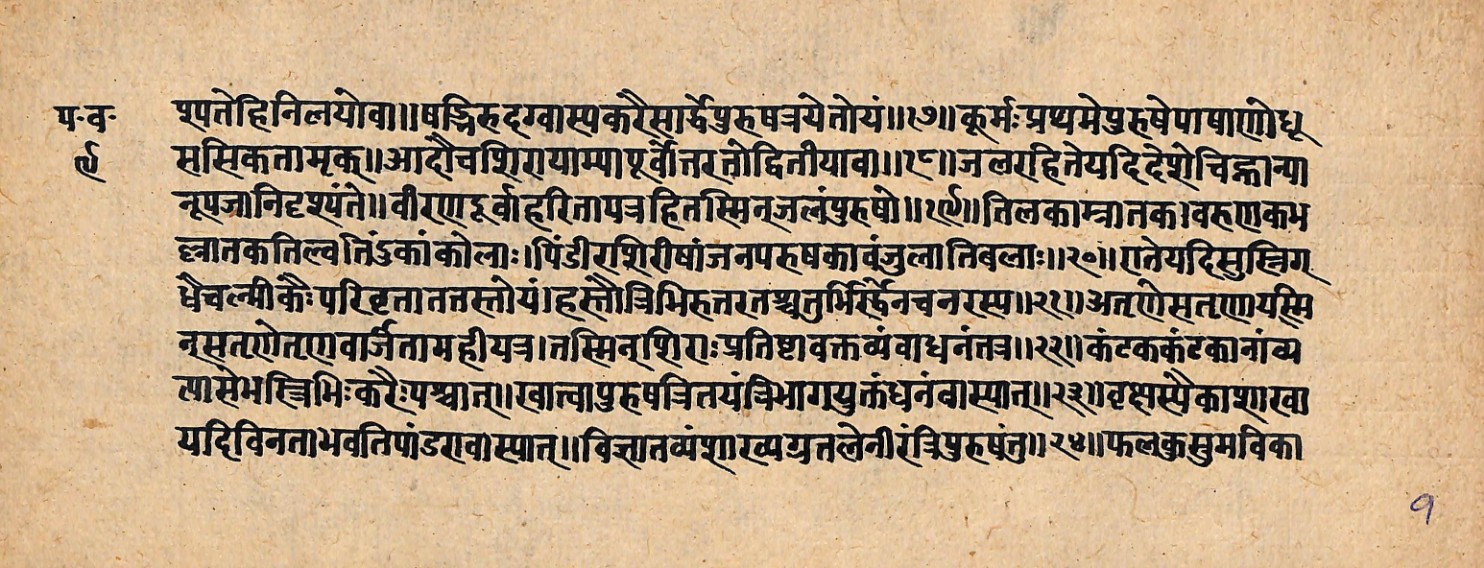 प॰व॰
९
श्यतेहिनिलयोवा॥षड्भिरुदग्वास्यकरैःसार्द्धेपुरुषत्रयेतोयं॥१७॥कूर्मःप्रथमेपुरुषेपाषाणोधू
ससिकतामृक्॥आदौचशिरायाम्यापूर्वोत्तरतोद्वितीयावा॥१८॥जलरहितेयदिदेशेचिह्नान्या
नूपजानिदृश्यंते॥वीरणदूर्वाहरितायत्रहितस्मिन्जलंपुरुषो॥१९॥तिलकाम्रातक।वरुणकभ
ल्लातकतिल्वतिंडुकांकोलाः।पिंडीराशिरीषांजनपरुषकावंजुलातिबलाः॥२०॥रातेयदिसुस्निग्
धैचल्मीकैःपरिवृतातत्तस्तोयं।हस्तौत्रिभिरुतरतश्चतुर्भिरर्द्धेनचनरस्य॥२१॥अतृणेसतृणायस्मि
न्सतृणेतृणवार्जितामहीयत्र।तस्मिन्शिराःप्रतिष्टावक्तव्यंवाधनंतत्र॥२२॥कंटककंटकानांव्य
त्यासेंभस्त्रिभिःकरैःपश्चात्॥खात्वापुरुषत्रितयंत्रिभागयुक्तंधनंवास्यात्॥२३॥वृक्षस्यैकाशाखा
यदिविनताभवतिपांडरावास्यात्॥विज्ञातव्यंशाखाग्रतलेनीरंत्रिपुरुषंतु॥२४॥फलकुसुमविका
9